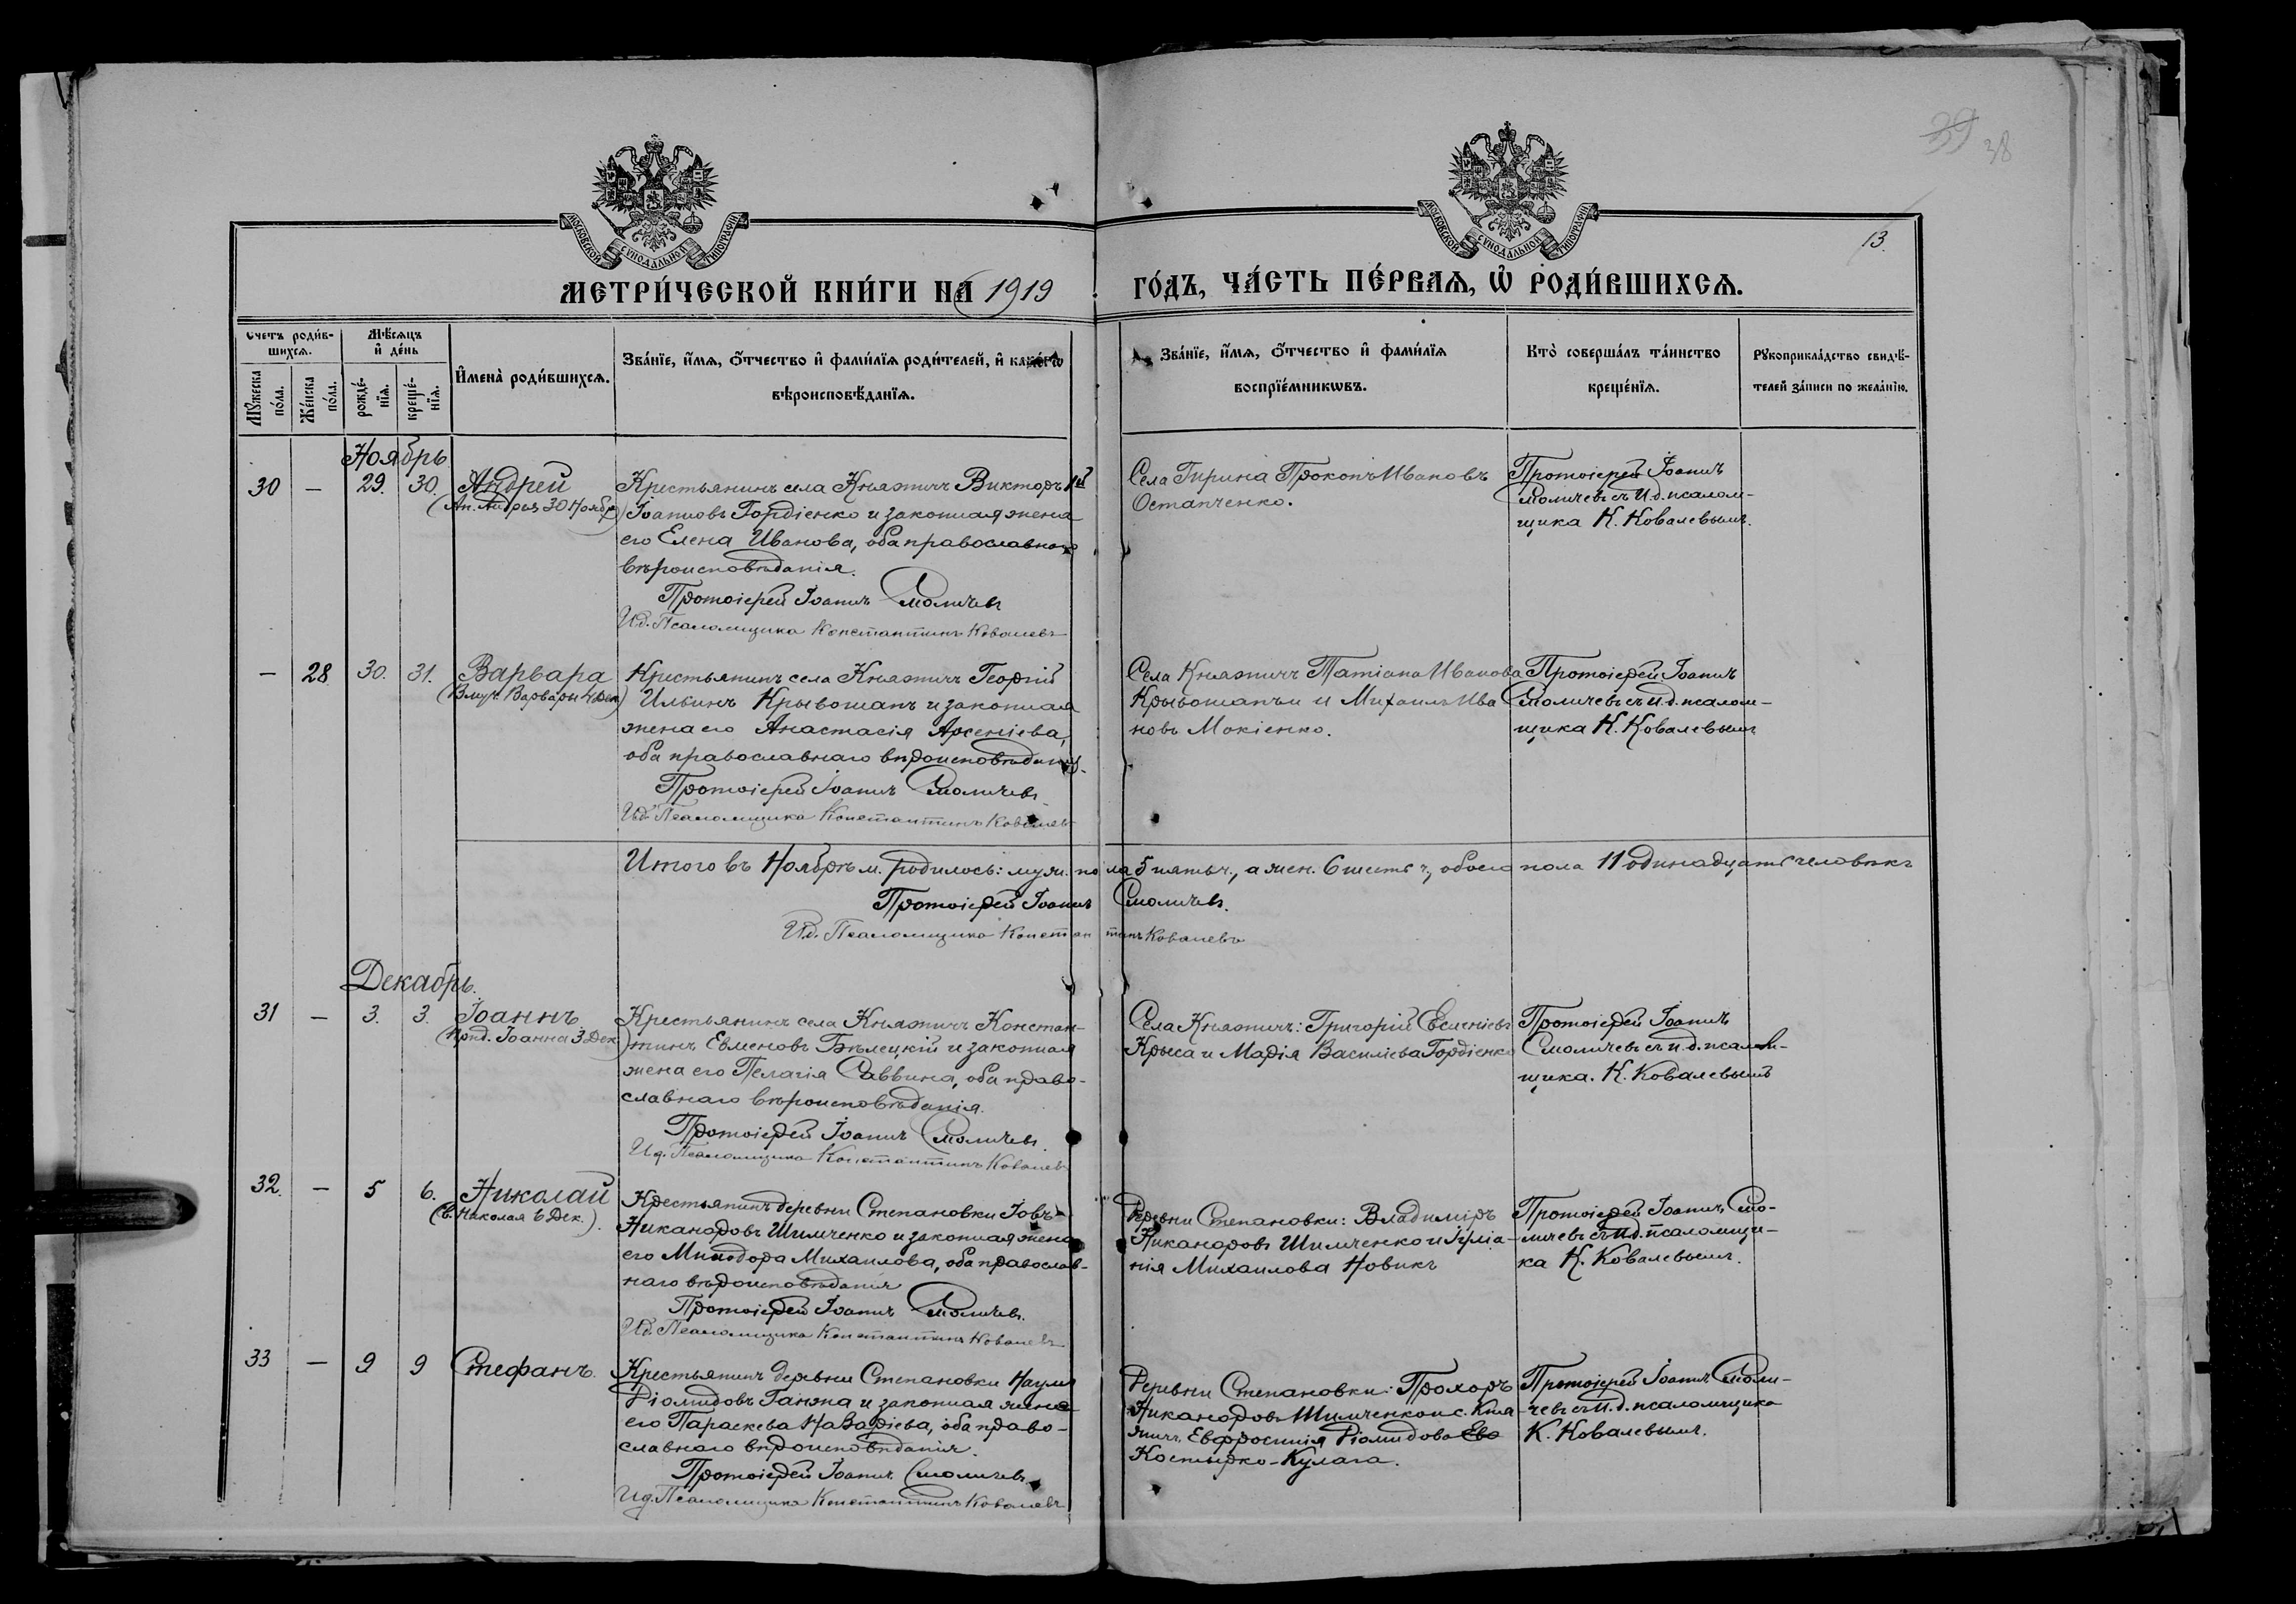 39 38
МОСКОВСКОЙ СѴНОДАЛЬНОЙ ТИПОГРАФІИ
МОСКОВСКОЙ СѴНОДАЛЬНОЙ ТИПОГРАФІИ
13.
МЕТРИ́ЧЕСКОЙ КНИ́ГИ НА 1919
ГО́ДЪ, ЧА́СТЬ ПЕ́РВАѦ, Ѽ РОДИ́ВШИХСѦ.
Счетъ роди́в-
шихсѧ.
Мѣ́сѧцъ
и҆ де́нь
Мꙋ́жеска
по́ла.
Же́нска
по́ла.
рожде́-
нїѧ.
креще́-
нїѧ.
И҆мена̀ роди́вшихсѧ.
Зва́нїе, и҆́мѧ, ѻ҆́тчество и҆ фами́лїѧ роди́телей, и҆ како́гѡ
вѣроисповѣ́данїѧ.
Зва́нїе, и҆́мѧ, ѻ҆́тчество и҆ фами́лїѧ
воспрїе́мникѡвъ.
Кто̀ соверша́лъ та́инство
креще́нїѧ.
Рꙋкоприкла́дство свидѣ́-
телей за́писи по жела́нїю.
Ноябрь
30 — 29. 30. Андрей
(Ап. Андрея 30 Ноябр)
Крестьянинъ села Княжичъ Викторъ 1й
Іоанновъ Гордіенко и законная жена
его Елена Иванова, оба православнаго
вѣроисповѣданія.
Протоіерей Іоаннъ Смоличевъ
И.д. Псаломщика Константинъ Ковалевъ
Села Гирина Прокопъ Ивановъ
Остапченко.
Протоіерей Іоаннъ
Смоличевъ съ И.д. псалом-
щика К. Ковалевымъ.
— 28 30. 31. Варвара
(Вмуч. Варвары 4 Дек)
Крестьянинъ села Княжичъ Георгій
Ильинъ Крывошапъ и законная
жена его Анастасія Арсеніева,
оба православнаго вѣроисповѣданія.
Протоіерей Іоаннъ Смоличевъ.
И.д. Псаломщика Константинъ Ковалевъ
Села Княжичъ Татіана Иванова
Крывошапъи и Михаилъ Ива
новъ Мокіенко.
Протоіерей Іоаннъ
Смоличевъ съ и.д. псалом-
щика К. Ковалевымъ
Итого въ Ноябрѣ м. родилось: муж. пола 5 пять ч., а жен. 6 шесть ч., обоего пола 11 одинадцать человѣкъ
Протоіерей Іоаннъ Смоличевъ.
И.д. Псаломщика Константинъ Ковалевъ
Декабрь.
31 — 3. 3. Іоаннъ
(Прпд. Іоанна 3 Дек.)
Крестьянинъ села Княжичъ Констан-
тинъ Евменовъ Бѣлецкій и законная
жена его Пелагія Саввина, оба право-
славнаго вѣроисповѣданія.
Протоіерей Іоаннъ Смоличевъ.
И.д. Псаломщика Константинъ Ковалевъ
Села Княжичъ: Григорій Евсеніевъ
Крыса и Марія Василіева Гордіенко
Протоіерей Іоаннъ
Смоличевъ съ и.д. псалом-
щика. К. Ковалевымъ
32. — 5 6. Николай
(Св. Николая 6 Дек.).
Крестьянинъ деревни Степановки Іовъ
Никаноровъ Шимченко и законная жена
его Минодора Михаилова, оба православ-
наго вѣроисповѣданія
Протоіерей Іоаннъ Смоличевъ.
И.д. Псаломщика Константинъ Ковалевъ
Деревни Степановки: Владиміръ
Никаноровъ Шимченко и Іуліа-
нія Михаилова Новикъ
Протоіерей Іоаннъ Смо-
личевъ съ и.д. псаломщи-
ка К. Ковалевымъ.
33 — 9 9 Стефанъ.
Крестьянинъ деревни Степановки Наумъ
Діомидовъ Ганжа и законная жена
его Параскева Назаріева, оба право-
славнаго вѣроисповѣданія.
Протоіерей Іоаннъ Смоличевъ
И.д. Псаломщика Константинъ Ковалевъ
Деревни Степановки: Прохоръ
Никаноровъ Шимченко и с. Кня-
жичъ Евфросинія Діомидова Ево
Костырко-Кулага.
Протоіерей Іоаннъ Смоли-
чевъ съ И.д. псаломщика
К. Ковалевымъ.